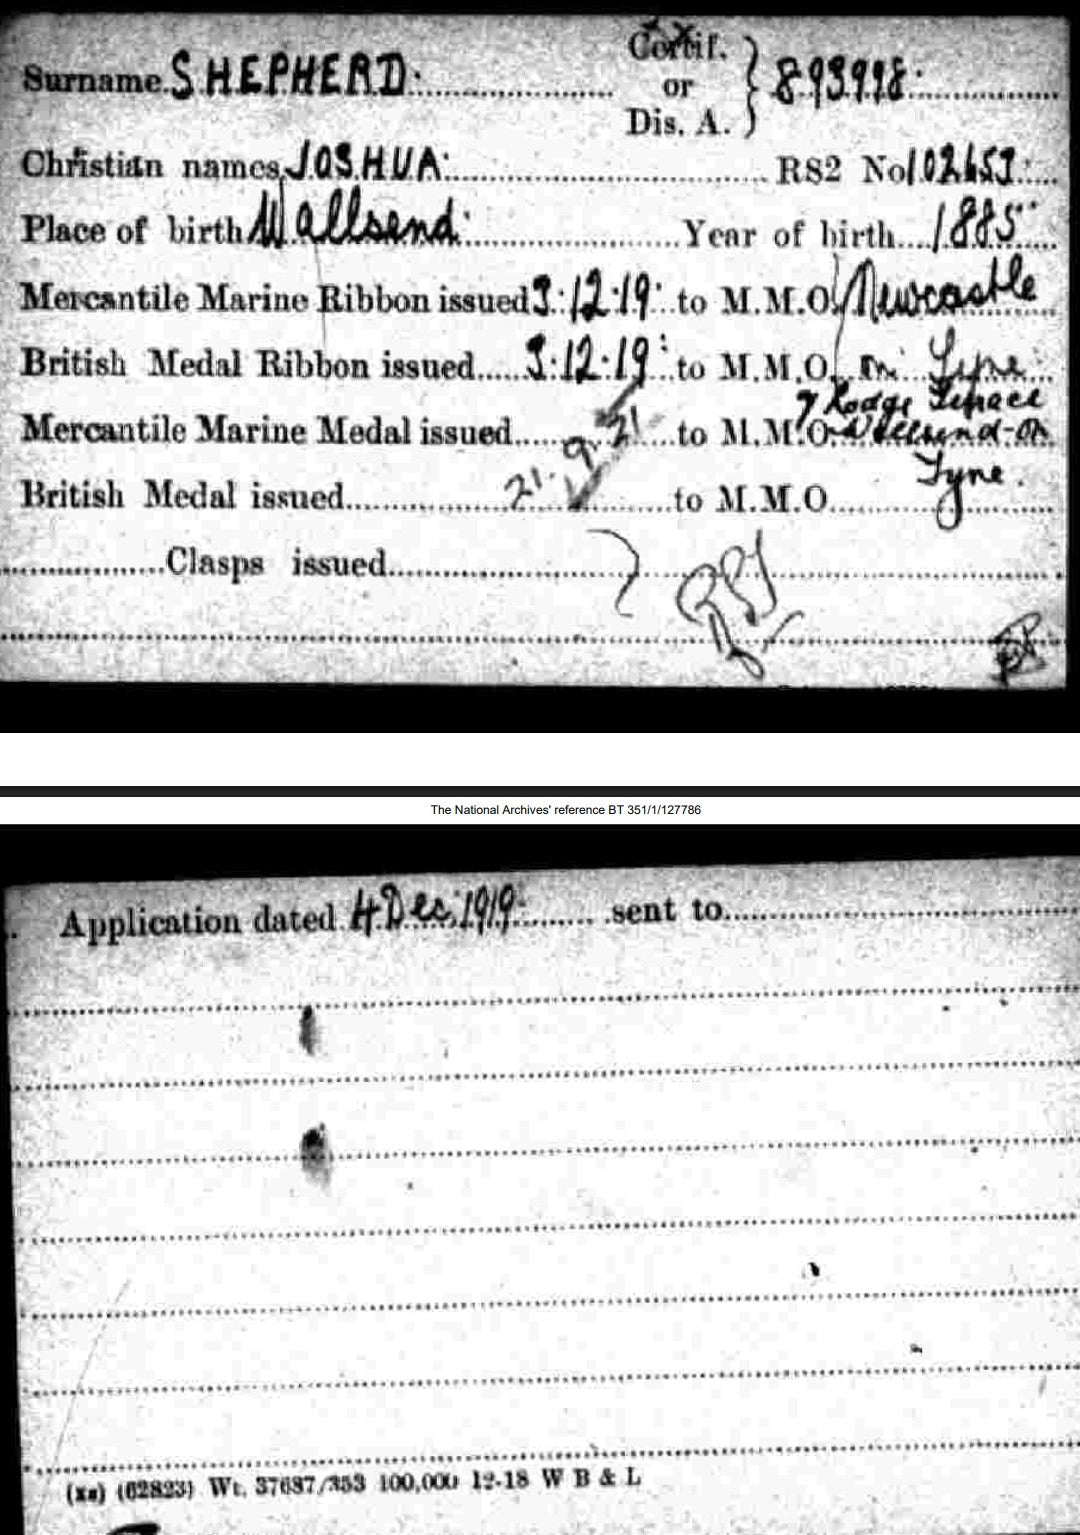 Surname. SHEPHERD. Certif. or Dis. A. } 893998.
Christian names, JOSHUA. RS2 No 102653.
Place of birth Wallsend. Year of birth 1885
Mercantile Marine Ribbon issued 3.12.19. to M.M.O. Newcastle
British Medal Ribbon issued 3.12.19. to M.M.O. on Tyne.
7 Lodge Terrace
Mercantile Marine Medal issued to M.M.O. Wallsend-on
British Medal issued 21.9.21 to M.M.O. Tyne.
Clasps issued
The National Archives' reference BT 351/1/127786
Application dated 4 Dec. 1919. sent to
(62823) Wt. 37687/353 100,000 12-18 W B & L